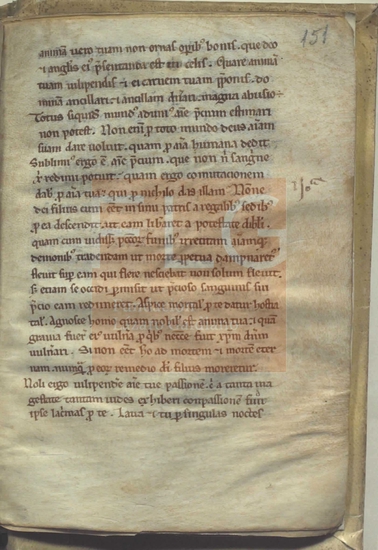 151
animam uero tuam non ornas opib' bonis. que deo
⁊ angłis ei' p̄sentanda est in celis. Quare animā
tuam uilipendis ⁊ ei carnem tuam p̄ponis. do
minā ancillari ⁊ ancillam dn̄ari. magna abusio ÷
Totus siquid' mund' ad uni' aīe p̄cium estimari
non potest. Non enī p toto mundo deus aīam
suam dare uoluit. quam p aīa humana dedit
Sublimi' ergo ē aīe p̄cium. que non ñ sanguīe
redimi potuit. quam ergo cōmutacionem
dab' p aīa tua qui p nichilo das illam. Nonne
dei filius cum eēt in sinu patris a regalib' sedib'
p ea descendit. ut eam liberaret a potestate dibłi.
quam cum uidiss& pctōr' funib' irretitam
demonib' tradendam ut morte ppetua dampnaret'
fleuit sup eam qui flere nesciebat non solum fleuit.
S; etiam se occidi pmisit ut p̄cioso sanguinis sui
p̄cio eam redimeret. Aspice mortał. p te datur hostia
tał. Agnosce homo quam nobił est anima tua. ⁊ quā
grauia fuer̄ ei' uuln̄a. p qb' necē fuit xp̄m dn̄m
uuln̄ari. Si non eēt h' ad mortem ⁊ mortē eter
nam. nunq̄ p eor' remedio di filius moreretur.
Noli ergo uilipendē aīe tue passionē. cui a tanta ma
gestate tantam uides exhiberi conpassionē. fudit
ipse lacrimas p te. Laua ⁊ tu p singulas noctes